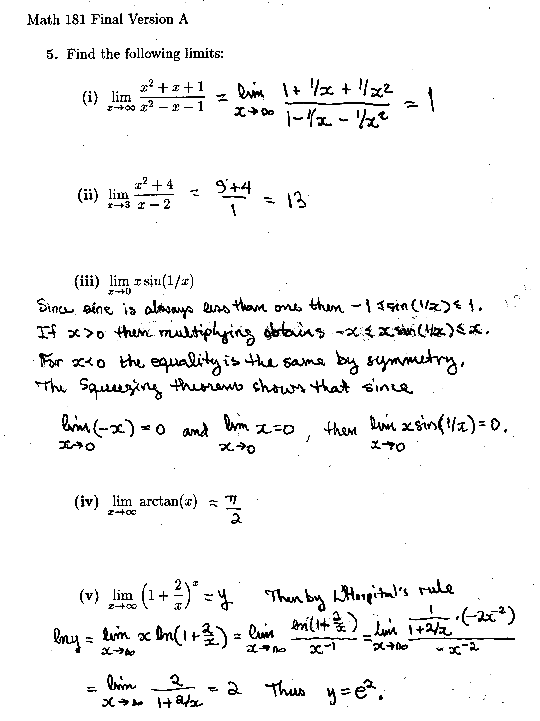 Math 181 Final Version A
5. Find the following limits:
(i) lim x→∞ (x² + x + 1)/(x² − x − 1) = lim x→∞ (1 + 1/x + 1/x²)/(1 − 1/x − 1/x²) = 1
(ii) lim x→3 (x² + 4)/(x − 2) = (9+4)/1 = 13
(iii) lim x→0 x sin(1/x)
Since sine is always less than one then −1 ≤ sin(1/x) ≤ 1.
If x>0 then multiplying obtains −x ≤ x sin(1/x) ≤ x.
For x<0 the equality is the same by symmetry.
The Squeezing theorem shows that since
lim x→0 (−x) = 0 and lim x→0 x = 0, then lim x→0 x sin(1/x) = 0.
(iv) lim x→∞ arctan(x) = π/2
(v) lim x→∞ (1 + 2/x)^x = y Then by L'Hospital's rule
ln y = lim x→∞ x ln(1 + 2/x) = lim x→∞ ln(1 + 2/x)/x⁻¹ = lim x→∞ (1/(1+2/x) · (−2x⁻²))/(−x⁻²)
= lim x→∞ 2/(1 + 2/x) = 2 Thus y = e².